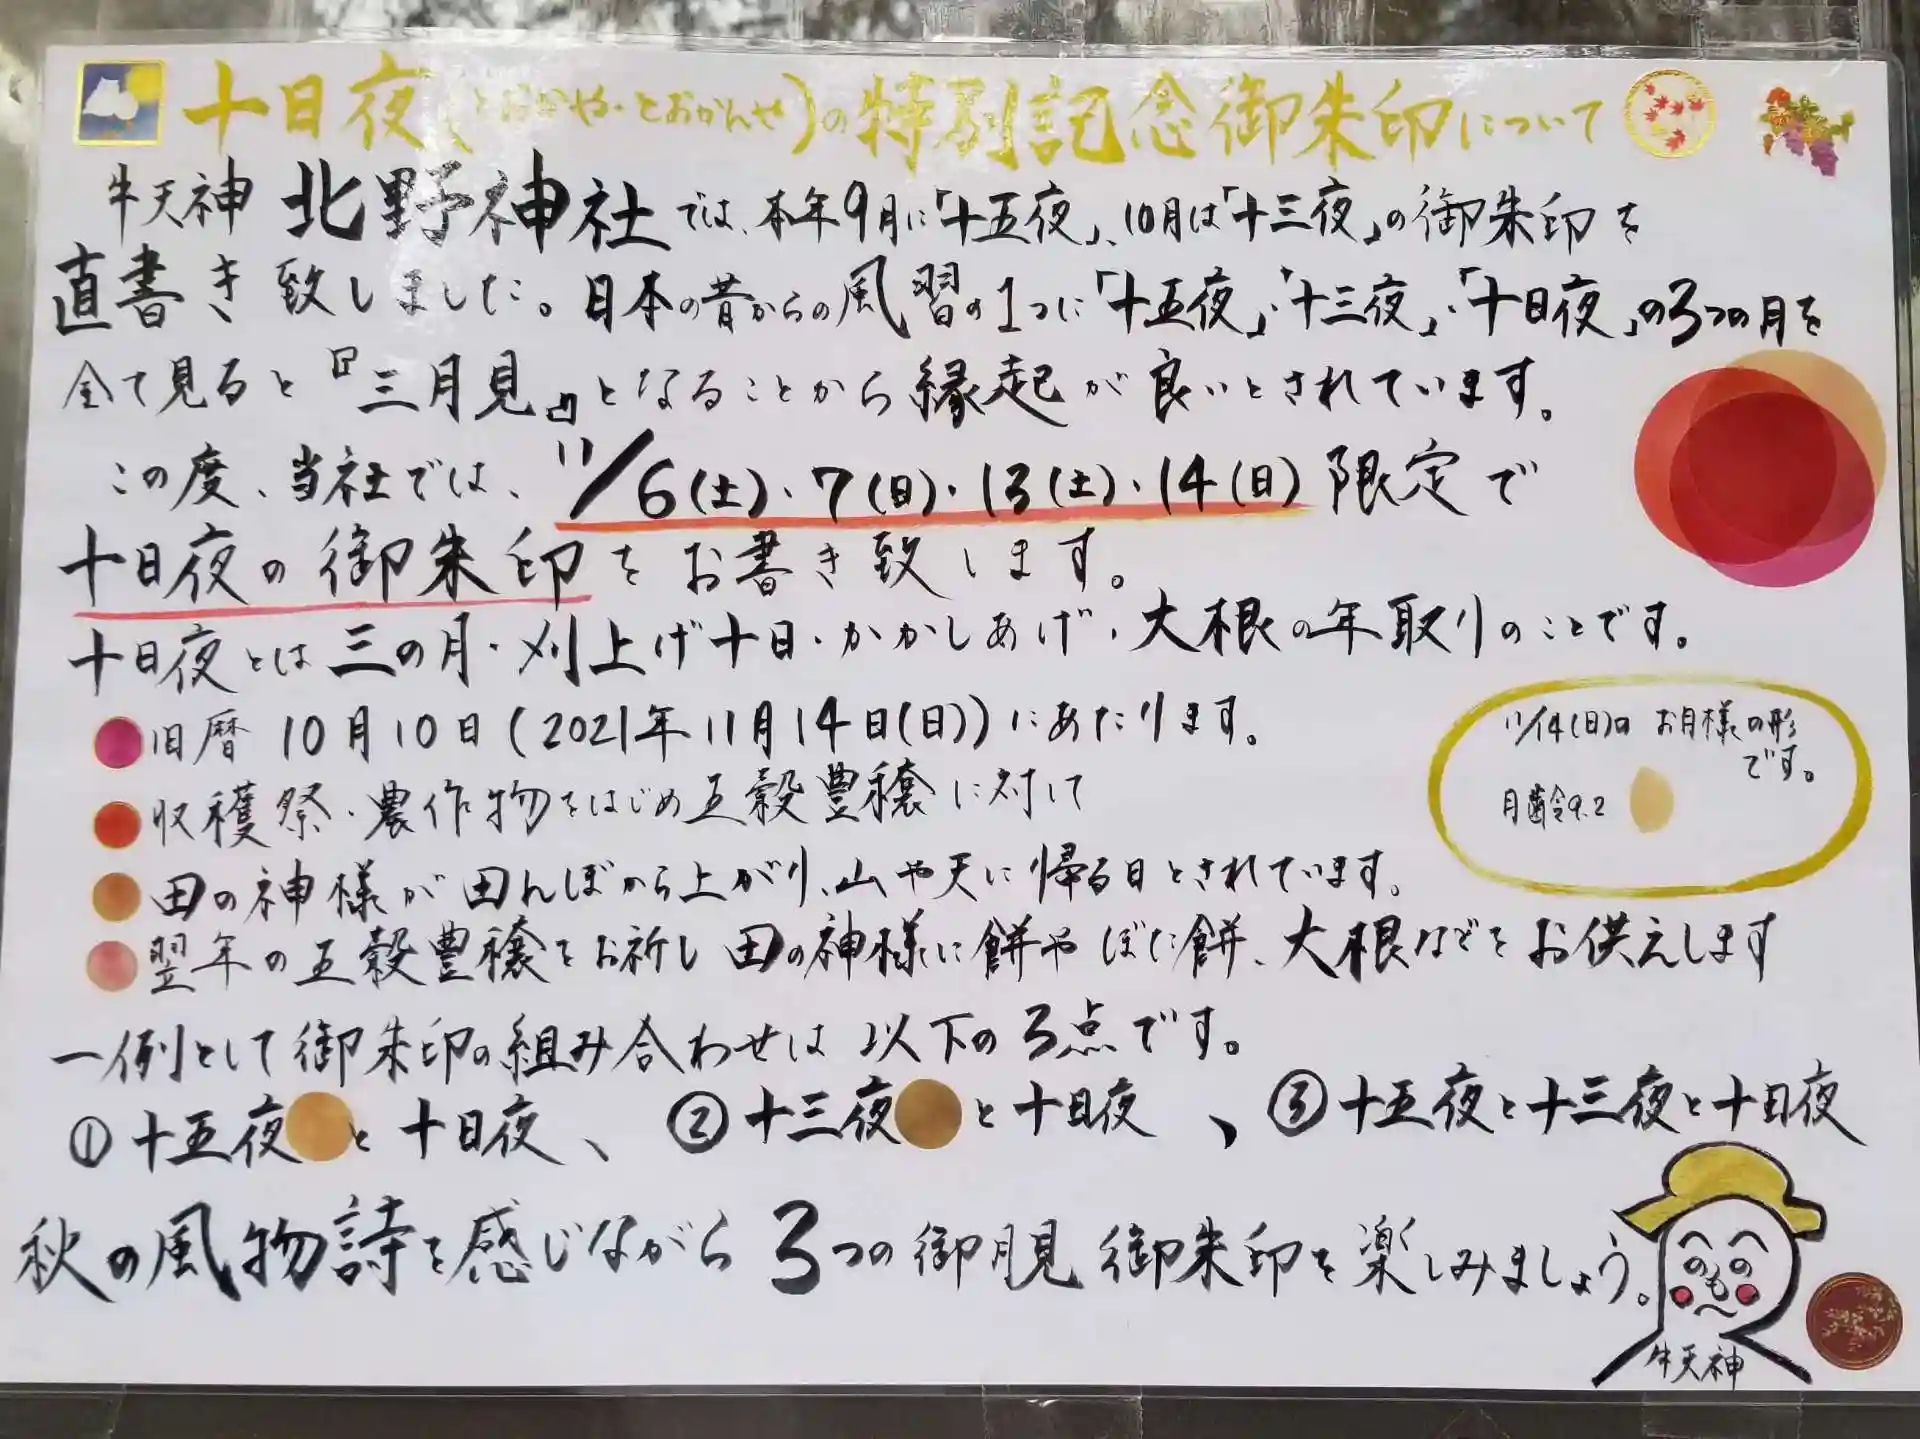 十日夜(とおかや・とおかんや)の特別記念御朱印について
牛天神 北野神社では、本年9月に「十五夜」、10月は「十三夜」の御朱印を
直書き致しました。日本の昔からの風習の1つに「十五夜」・「十三夜」・「十日夜」の3つの月を
全て見ると『三月見』となることから縁起が良いとされています。
この度、当社では、11/6(土)・7(日)・13(土)・14(日)限定で
十日夜の御朱印をお書き致します。
十日夜とは三の月・刈上げ十日・かかしあげ・大根の年取りのことです。
旧暦 10月10日(2021年11月14日(日))にあたります。
収穫祭・農作物をはじめ五穀豊穣に対して
田の神様が田んぼから上がり、山や天に帰る日とされています。
翌年の五穀豊穣をお祈し田の神様に餅やぼた餅、大根などをお供えします
11/14(日)のお月様の形
です。
月齢9.2
一例として御朱印の組み合わせは以下の3点です。
①十五夜と十日夜、②十三夜と十日夜、③十五夜と十三夜と十日夜
秋の風物詩を感じながら3つの御月見御朱印を楽しみましょう。
へのへのも
牛天神